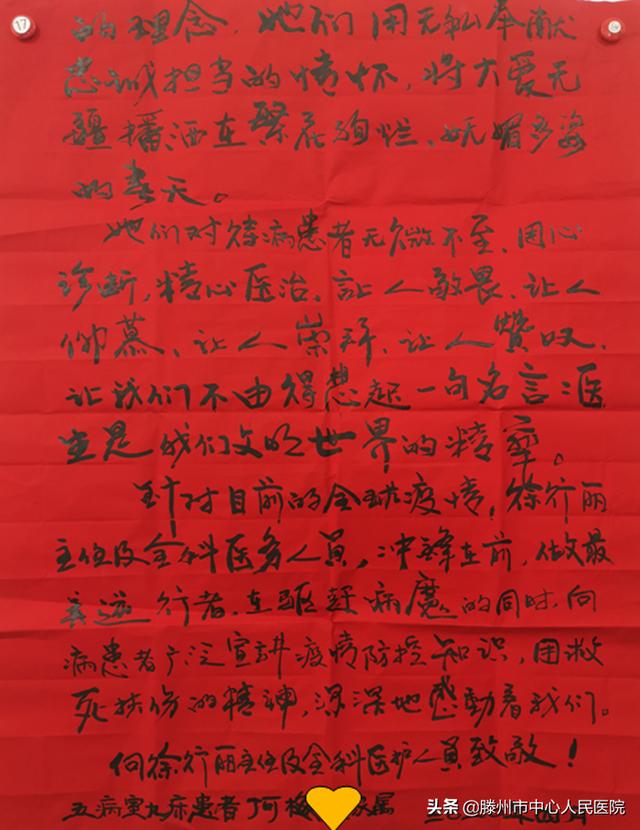 的理念。她们用无私奉献
忠诚担当的情怀,将大爱无
疆播洒在繁花绚烂、妩媚多姿
的春天。
她们对待病患者无微不至、用心
诊断,精心医治、让人敬畏、让人
仰慕、让人崇拜、让人赞叹,
让我们不由得想起一句名言:医
生是我们文明世界的精华。
针对目前的全球疫情,徐行丽
主任及全科医务人员,冲锋在前,做最
美逆行者,在驱赶病魔的同时,向
病患者广泛宣讲疫情防控知识,用救
死扶伤的精神,深深地感動着我们。
向徐行丽主任及全科医护人员致敬!
五病室九床患者
家属
头条 @滕州市中心人民医院